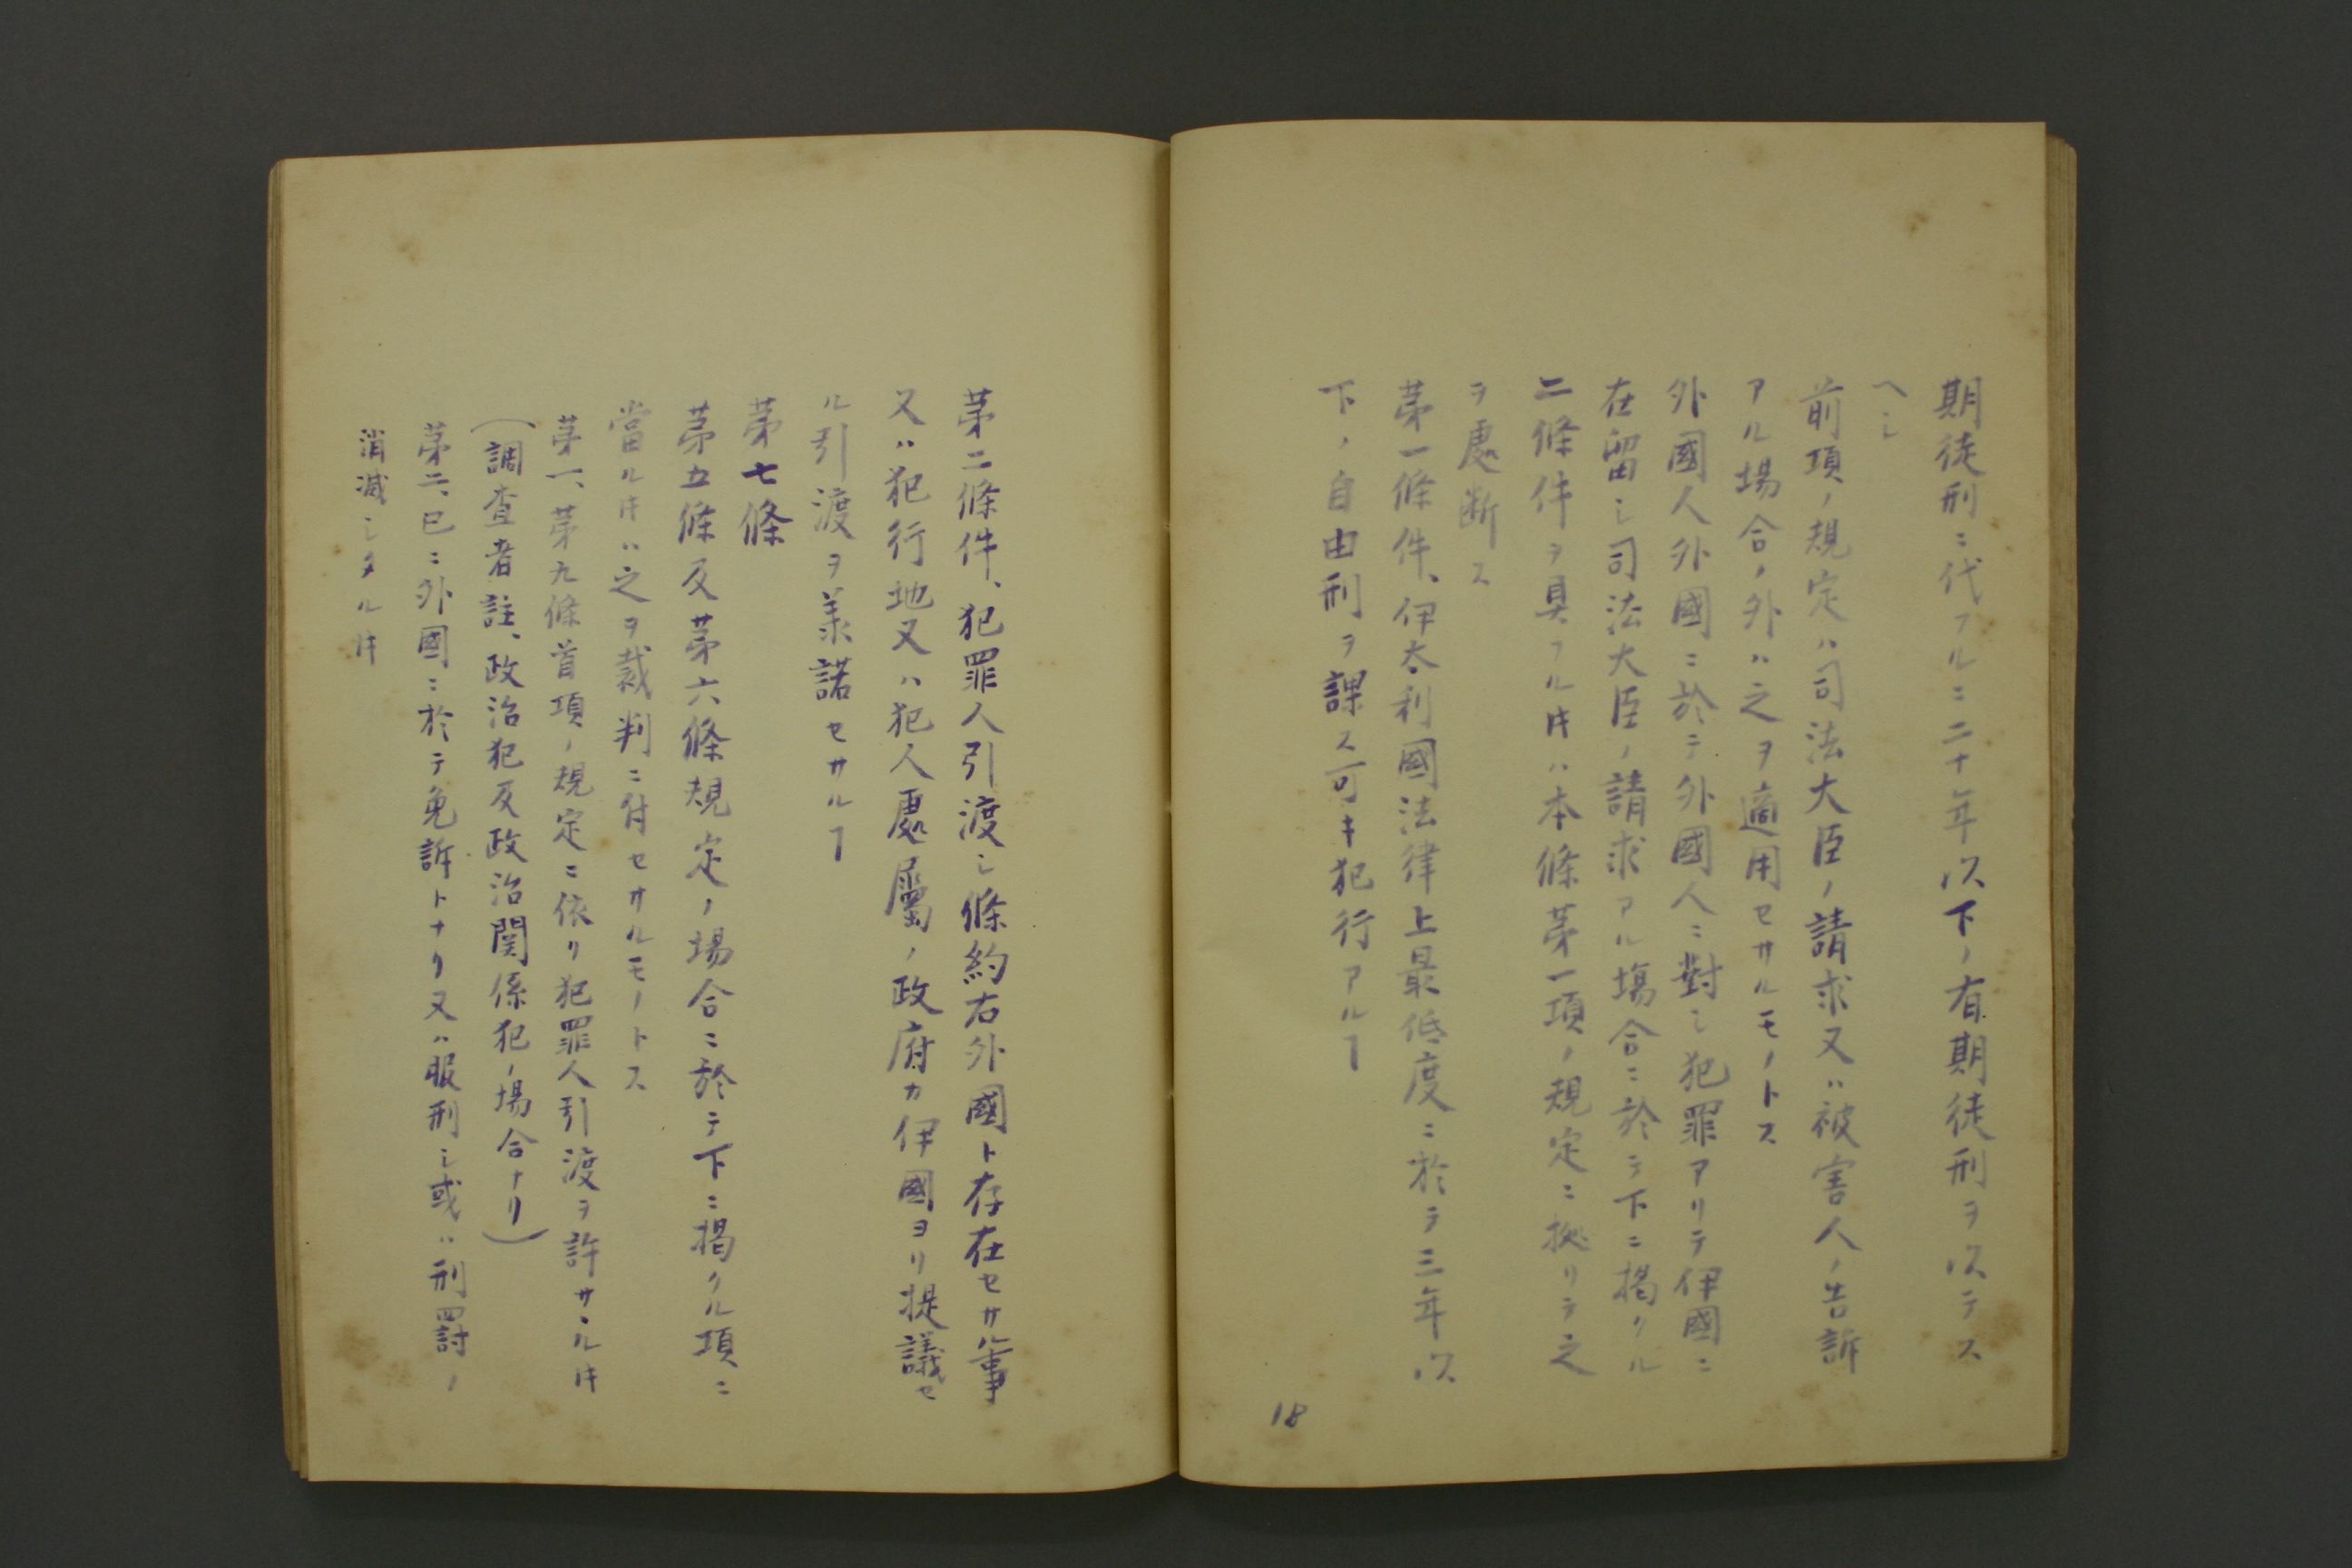 期徒刑ニ代フルニ二十年以下ノ有期徒刑ヲ以テス
ヘシ
前項ノ規定ハ司法大臣ノ請求又ハ被害人ノ告訴
アル場合ノ外ハ之ヲ適用セサルモノトス
外國人外國ニ於テ外國人ニ對シ犯罪アリテ伊國ニ
在留シ司法大臣ノ請求アル場合ニ於テ下ニ掲クル
二條件ヲ具フル𪜈ハ本條第一項ノ規定ニ拠リテ之
ヲ處断ス
第一條件、伊太利國法律上最低度ニ於テ三年以
下ノ自由刑ヲ課ス可キ犯行アルヿ
18
第二條件、犯罪人引渡シ條約右外國ト存在セサル事
又ハ犯行地又ハ犯人處屬ノ政府カ伊國ヨリ提議セ
ル引渡ヲ羕諾セサルヿ
第七條
第五條及第六條規定ノ場合ニ於テ下ニ掲クル項ニ
當ル𪜈ハ之ヲ裁判ニ付セサルモノトス
第一、第九條首項ノ規定ニ依リ犯罪人引渡ヲ許サヽル𪜈
（調査者註、政治犯及政治関係犯ノ場合ナリ）
第二、已ニ外國ニ於テ免訴トナリ又ハ服刑シ或ハ刑罰ノ
消滅シタル𪜈